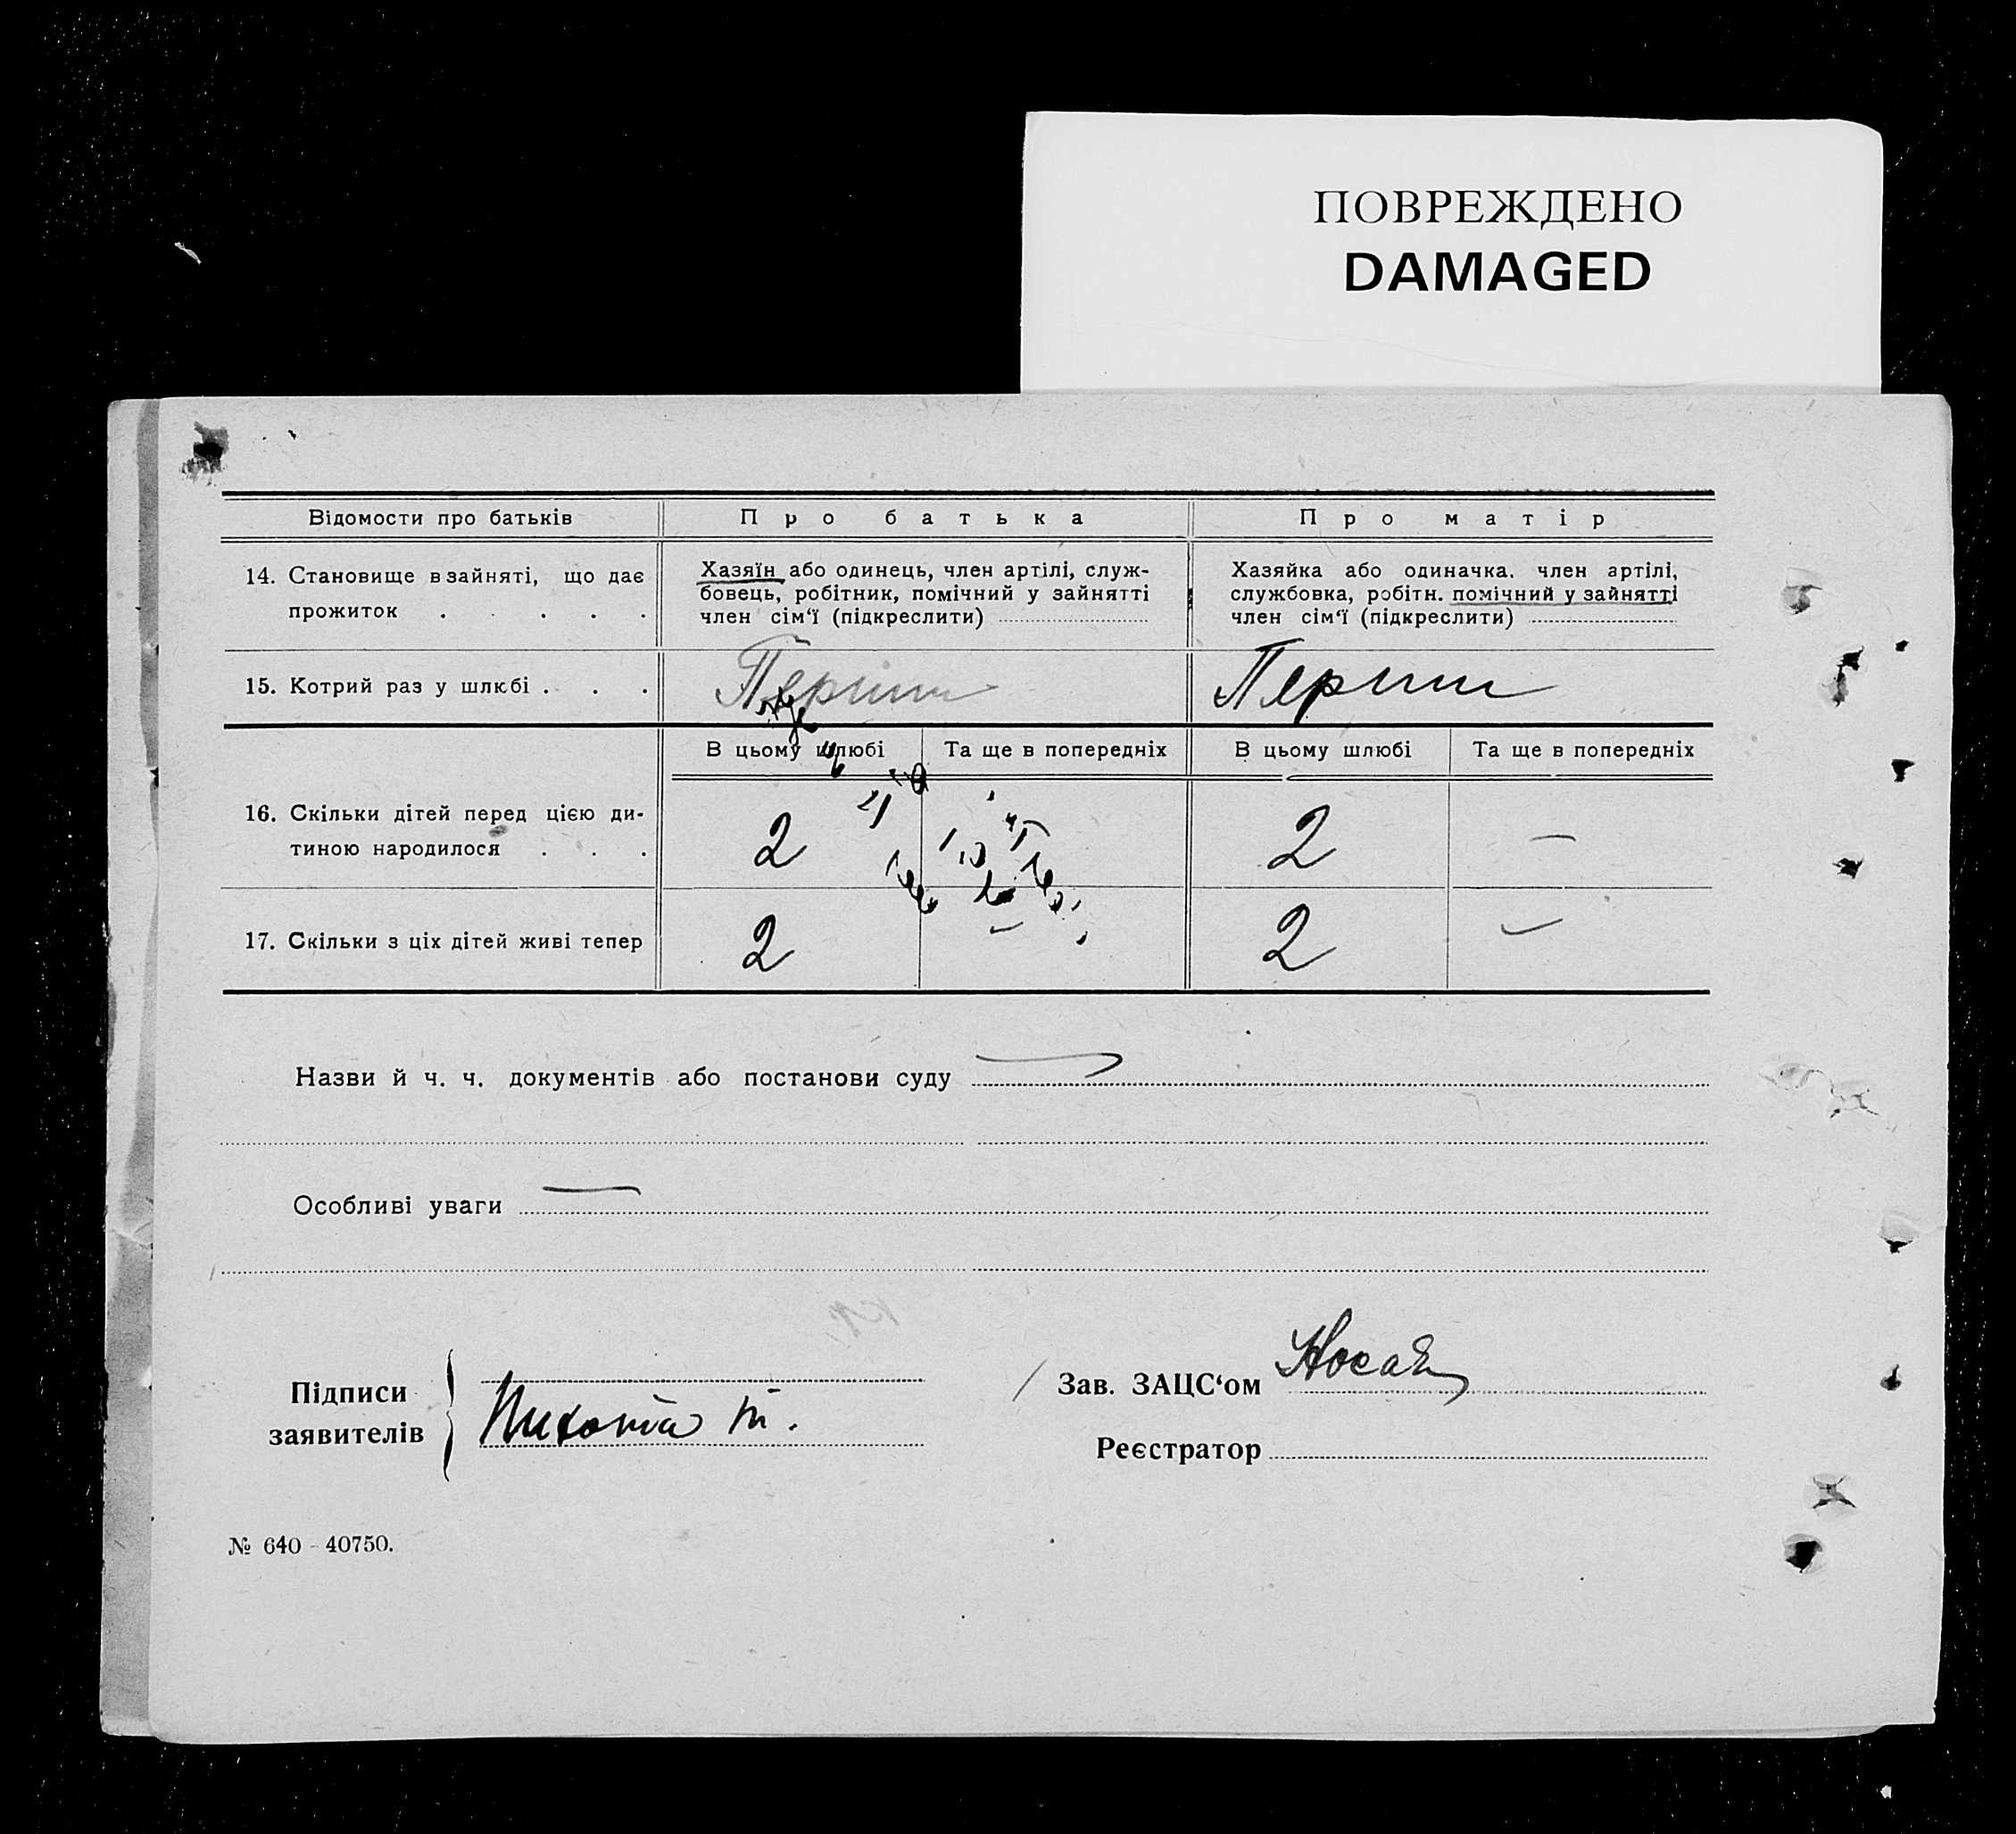 ПОВРЕЖДЕНО
DAMAGED
Відомости про батьків
Про батька
Про матір
14. Становище в зайняті, що дає
прожиток . . . .
Хазяїн або одинець, член артілі, служ-
бовець, робітник, помічний у зайнятті
член сім‘ї (підкреслити)
Хазяйка або одиначка. член артілі,
службовка, робітн. помічний у зайнятті
член сім‘ї (підкреслити)
15. Котрий раз у шлюбі . . .
Перший
Перший
В цьому шлюбі
Та ще в попередніх
В цьому шлюбі
Та ще в попередніх
16. Скільки дітей перед цією ди-
тиною народилося . . .
2
2
—
17. Скільки з ціх дітей живі тепер
2
—
2
—
Назви й ч. ч. документів або постанови суду —
Особливі уваги —
Підписи
заявителів
Зав. ЗАЦС‘ом
Реєстратор
№ 640 - 40750.